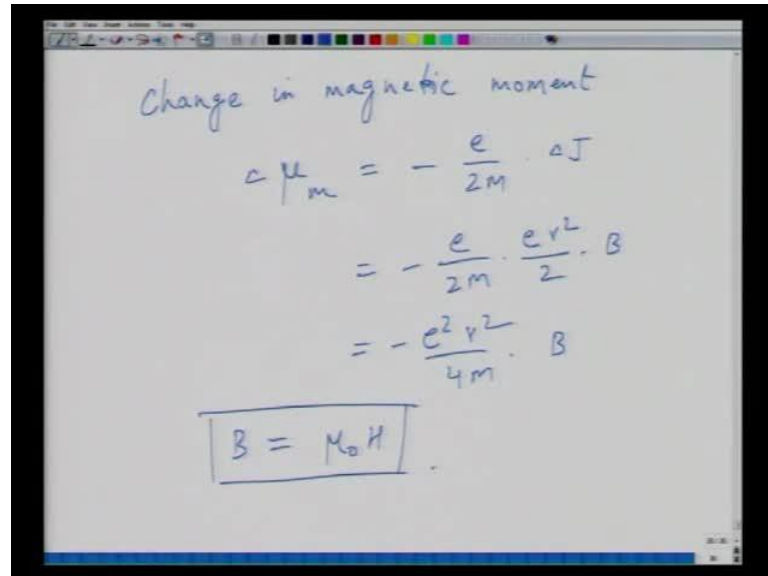 Change in magnetic moment
Δ μ_m = - e/2m . ΔJ
= - e/2m . e r²/2 . B
= - e² r²/4m . B
B = μ₀ H .